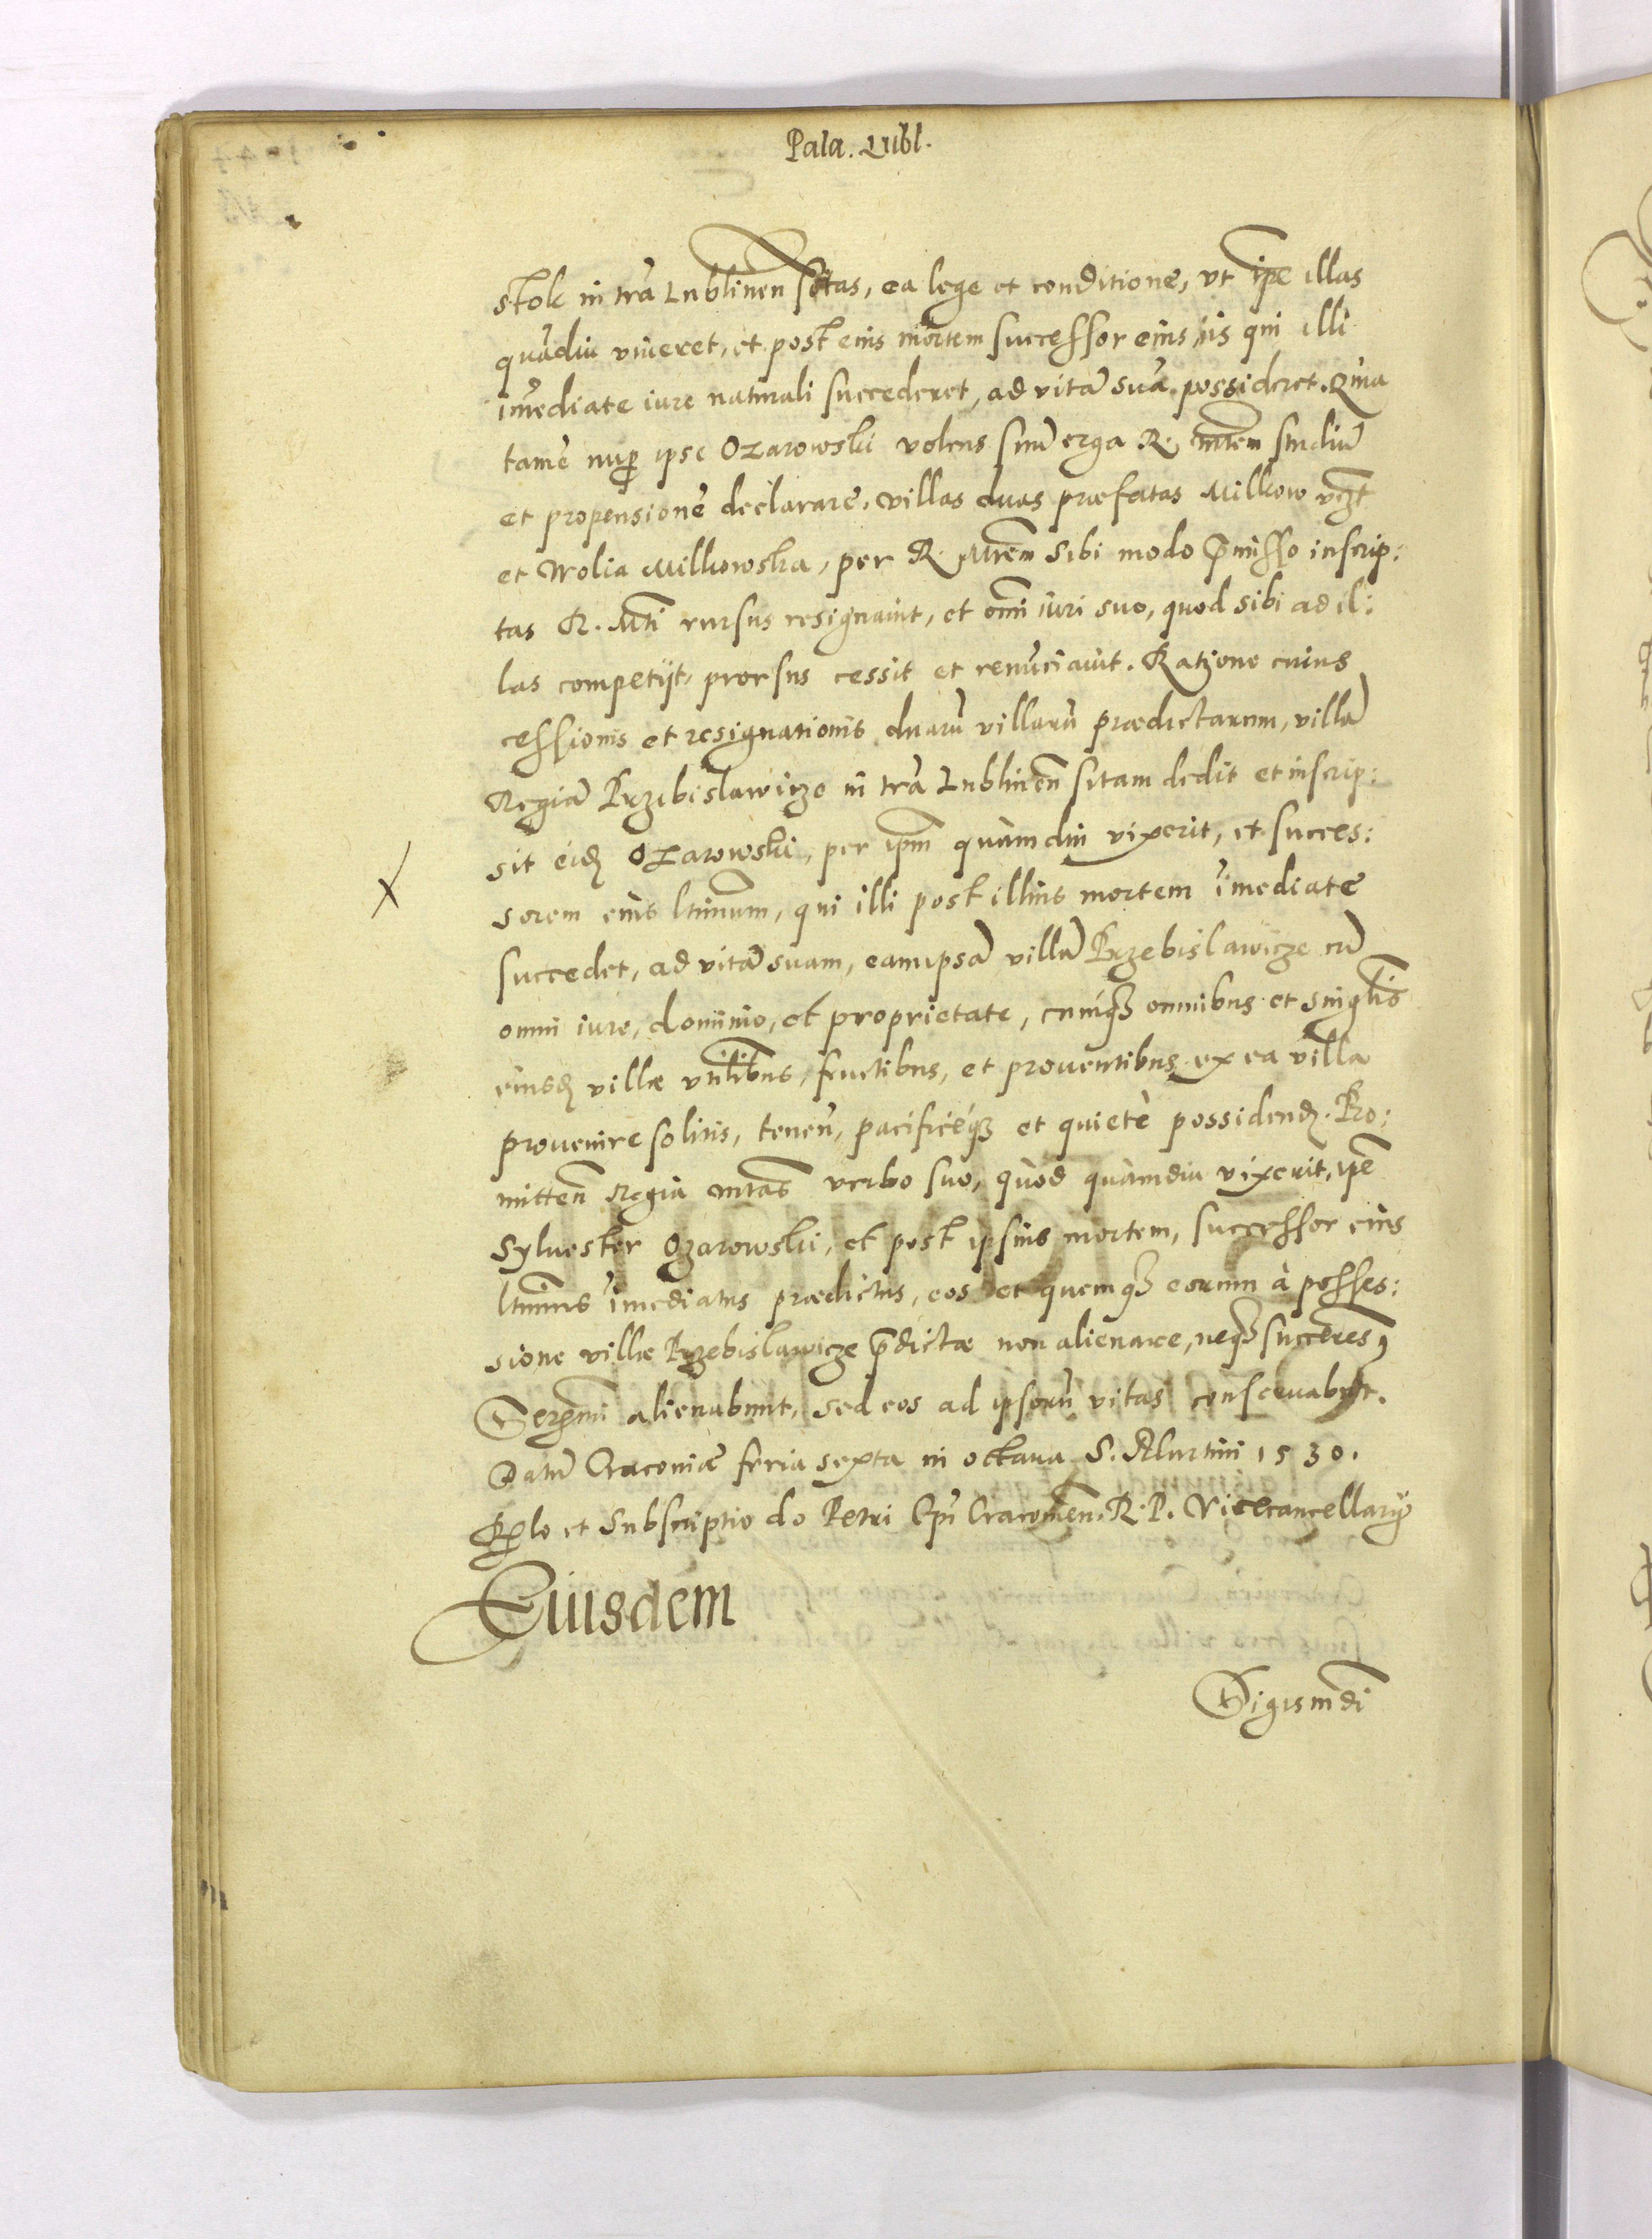 Pala. Lubl.
stok in tra Lublinen sitas, ea lege et conditione, vt ipe illas
quadiu viueret, et post eius mortem successor eius, iis qui illi
imediate iure naturali succederet, ad vitã suã possideret. Quia
tamẽ nup ipse Ozarowski volens suũ erga R. Mtem studiũ
et propensionẽ declarare, villas duas præfatas Milkow vczt
et Wolia Milkowska, per R. Mtem sibi modo pmisso inscrip:
tas R. Mti rursus resignauit, et omi iuri suo, quod sibi ad il:
las competijt, prorsus cessit et renũciauit. Ratione cuius
cessionis et resignationis duarũ villarũ prædictarum, villã
Regiã Przibislawicze in tra Lublinen sitam dedit et inscrip:
sit eidẽ Ozarowski, per ipm quamdiu vixerit, et succes:
X
sorem eius ltimum, qui illi post illius mortem imediatẽ
succedet, ad vitã suam, eamipsã villã Przebislawicze cũ
omni iure, dominio, et proprietate, cumq3 omnibus et singlis
eiusd villæ vtilibus, fructibus, et prouentibus ex ea villa
prouenire solitis, tenen, pacificeq3 et quietè possidend. Pro:
mitten Regia mtas verbo suo, quod quamdiu vixerit, ipe
Syluester Ozarowski, et post ipsius mortem, successor eius
ltimus imediatus prædictus, eos et quemq3 eorum à posses:
sione villæ Przebislawicze pdictæ non alienare, neq3 succesres
Sereṁi alienabunt, sed eos ad ipsorũ vitas conseruabunt.
Datũ Cracouiæ feria sexta in octaua S. Martini 1530.
Relo et Subscriptio do Petri Epi Cracouien. R. P. Vicecancellarij
Eiusdem
Sigismdi